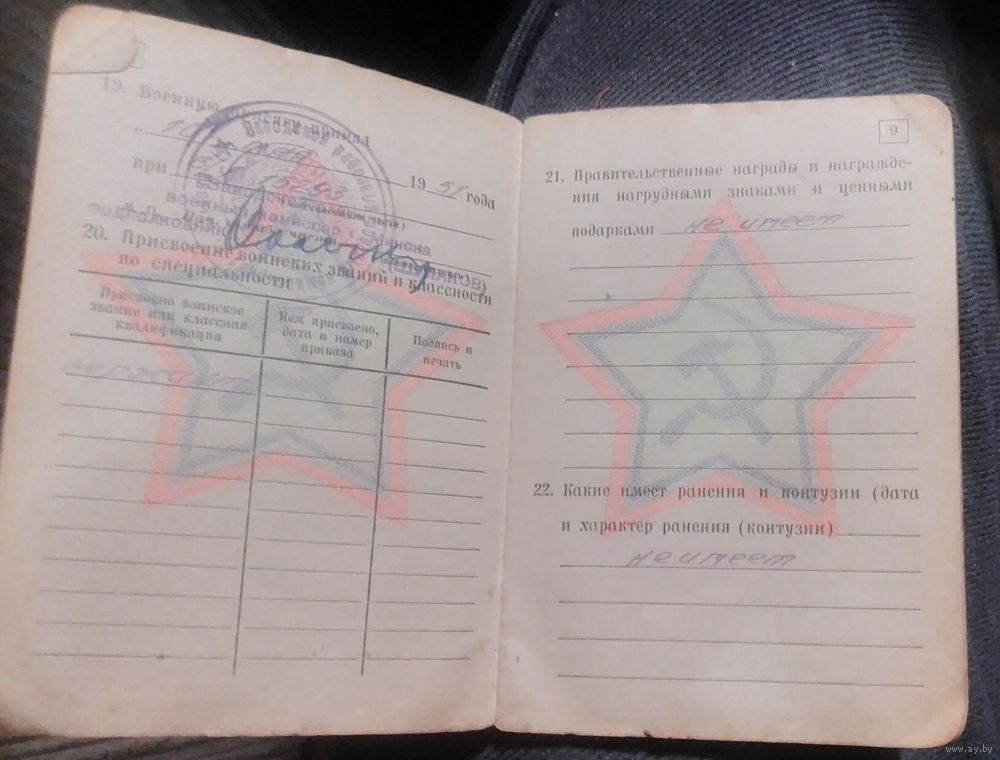 19. Военную присягу принял
" 10
при 15293 1951 года
(наименование части)
военный комиссар г. Минска
подполковник (ШИПАКОВ)
М. П.
(подпись)
20. Присвоение воинских званий и классности
по специальности
Присвоено воинское
звание или классная
квалификация
Кем присвоено,
дата и номер
приказа
Подпись и
печать
сержант
9
21. Правительственные награды и награжде-
ния нагрудными знаками и ценными
подарками не имеет
22. Какие имеет ранения и контузии (дата
и характер ранения (контузии)
не имеет
www.ay.by